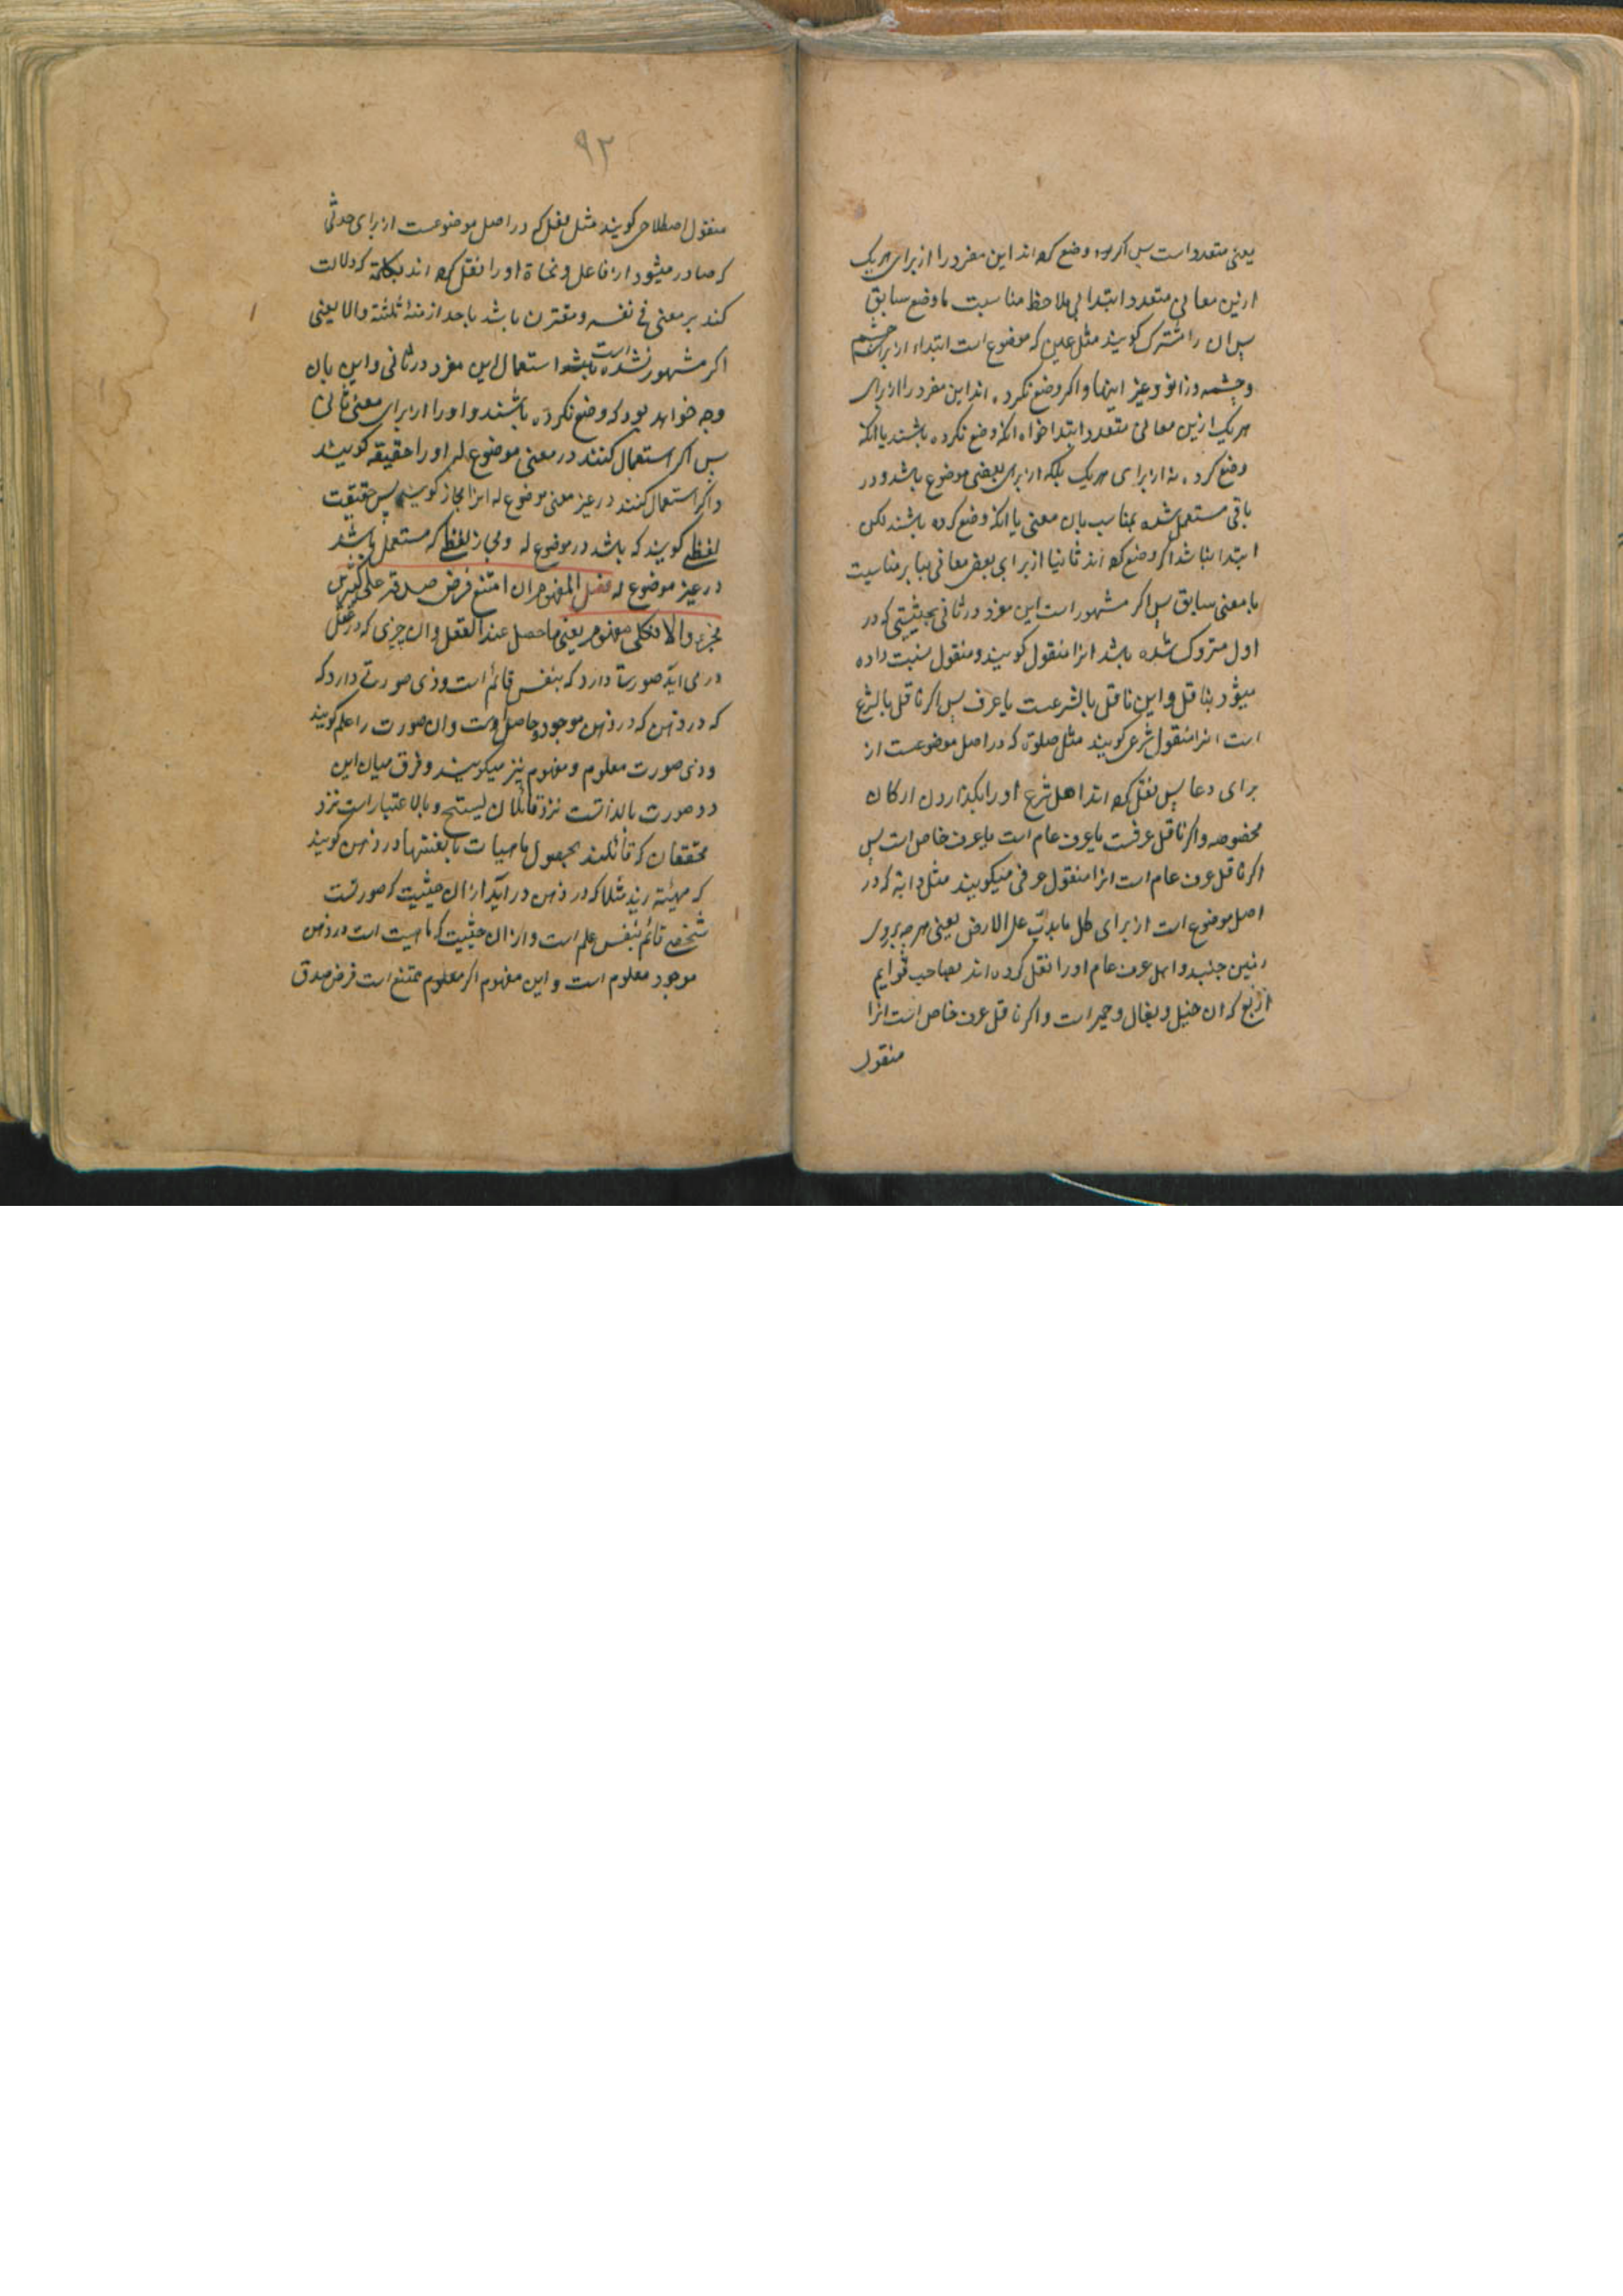 یعنی متعدد است پس اکر وضع کرده اند این مفرد را از برای هریک
ازین معانی متعدد ابتدا بی ملاحظ مناسبت با وضع سابق
پس ان را مشترک کویند مثل عین که موضوع است ابتداء از برای چشم
و چشمه و زانو و غیر اینها و اکر وضع نکرده اند این مفرد را از برای
هریک ازین معانی متعدد ابتدا خواه انکه وضع نکرده باشند یا انکه
وضع کرده نه از برای هریک بلکه از برای بعضی موضوع باشد و در
باقی مستعمل شده بمناسبت بان معنی یا انکه وضع کرده باشند لکن
ابتدا نباشد اکر وضع کرده اند ثانیا از برای بعض معانی بنا بر مناسبت
با معنی سابق پس اکر مشهور است این مفرد در ثانی بحیثیتی که در
اول متروک شده باشد انرا منقول کویند و منقول نسبت داده
میشود بناقل و این ناقل یا لشرعست یا عرف پس اکر ناقل یا لشرع
است انرا منقول شرعی کویند مثل صلوة که در اصل موضوعست از
برای دعا پس نقل کرده اند اهل شرع او را بکذاردن ارکان
مخصوصه و اکر ناقل عرفست یا عرف عام است یا عرف خاص است پس
اکر ناقل عرف عام است انرا منقول عرفی میکویند مثل دابة که در
اصل موضوع است از برای کل ما یدب علی الارض یعنی هرچه بروی
زمین جنبد و اهل عرف عام او را نقل کرده اند بصاحب قوایم
اربع که ان خیل و بغال و حمیر است و اکر ناقل عرف خاص است انرا
منقول
۹۲
منقول اصطلاحی کویند مثل فعل که در اصل موضوعست از برای حدثی
که صادر میشود از فاعل و نحاة او را نقل کرده اند بکلمة که دلالت
کند بر معنی فی نفسه و مقترن باشد باحد ازمنۀ ثلثه والا یعنی
اکر مشهور نشده است استعمال این مفرد در ثانی و این بان
وجه خواهد بود که وضع نکرده باشند و او را از برای معنی ثانی
پس اکر استعمال کنند در معنی موضوع له او را حقیقه کویند
و اکر استعمال کنند در غیر معنی موضوع له انرا مجاز کویند پس حقیقت
لفظی کویند که باشد در موضوع له و مجاز لفظی که مستعمل باشد
در غیر موضوع له فصل المفهوم ان امتنع فرض صدقه علی کثیرین
فجزئی والا فکلی مفهوم یعنی ما حصل عند العقل و ان چیزی که در عقل
در می اید صورتی دارد که بنفس قائم است و ذی صورتی دارد که
که در ذهن که در ذهن موجود و حاصل است و ان صورت را علم کویند
و ذی صورت معلوم و مفهوم نیز میکویند و فرق میان این
دو صورت بالذاتست نزد قائلان و بالاعتبار است نزد
محققان که قائلند بحصول ماهیات در ذهن کویند
که مهیئة زید مثلا که در ذهن در آید از ان حیثیت که صورتست
شخصی قائم بنفس علم است و از ان حیثیت که ماهیت است در ذهن
موجود معلوم است و این مفهوم اکر معلوم ممتنع است فرض صدق